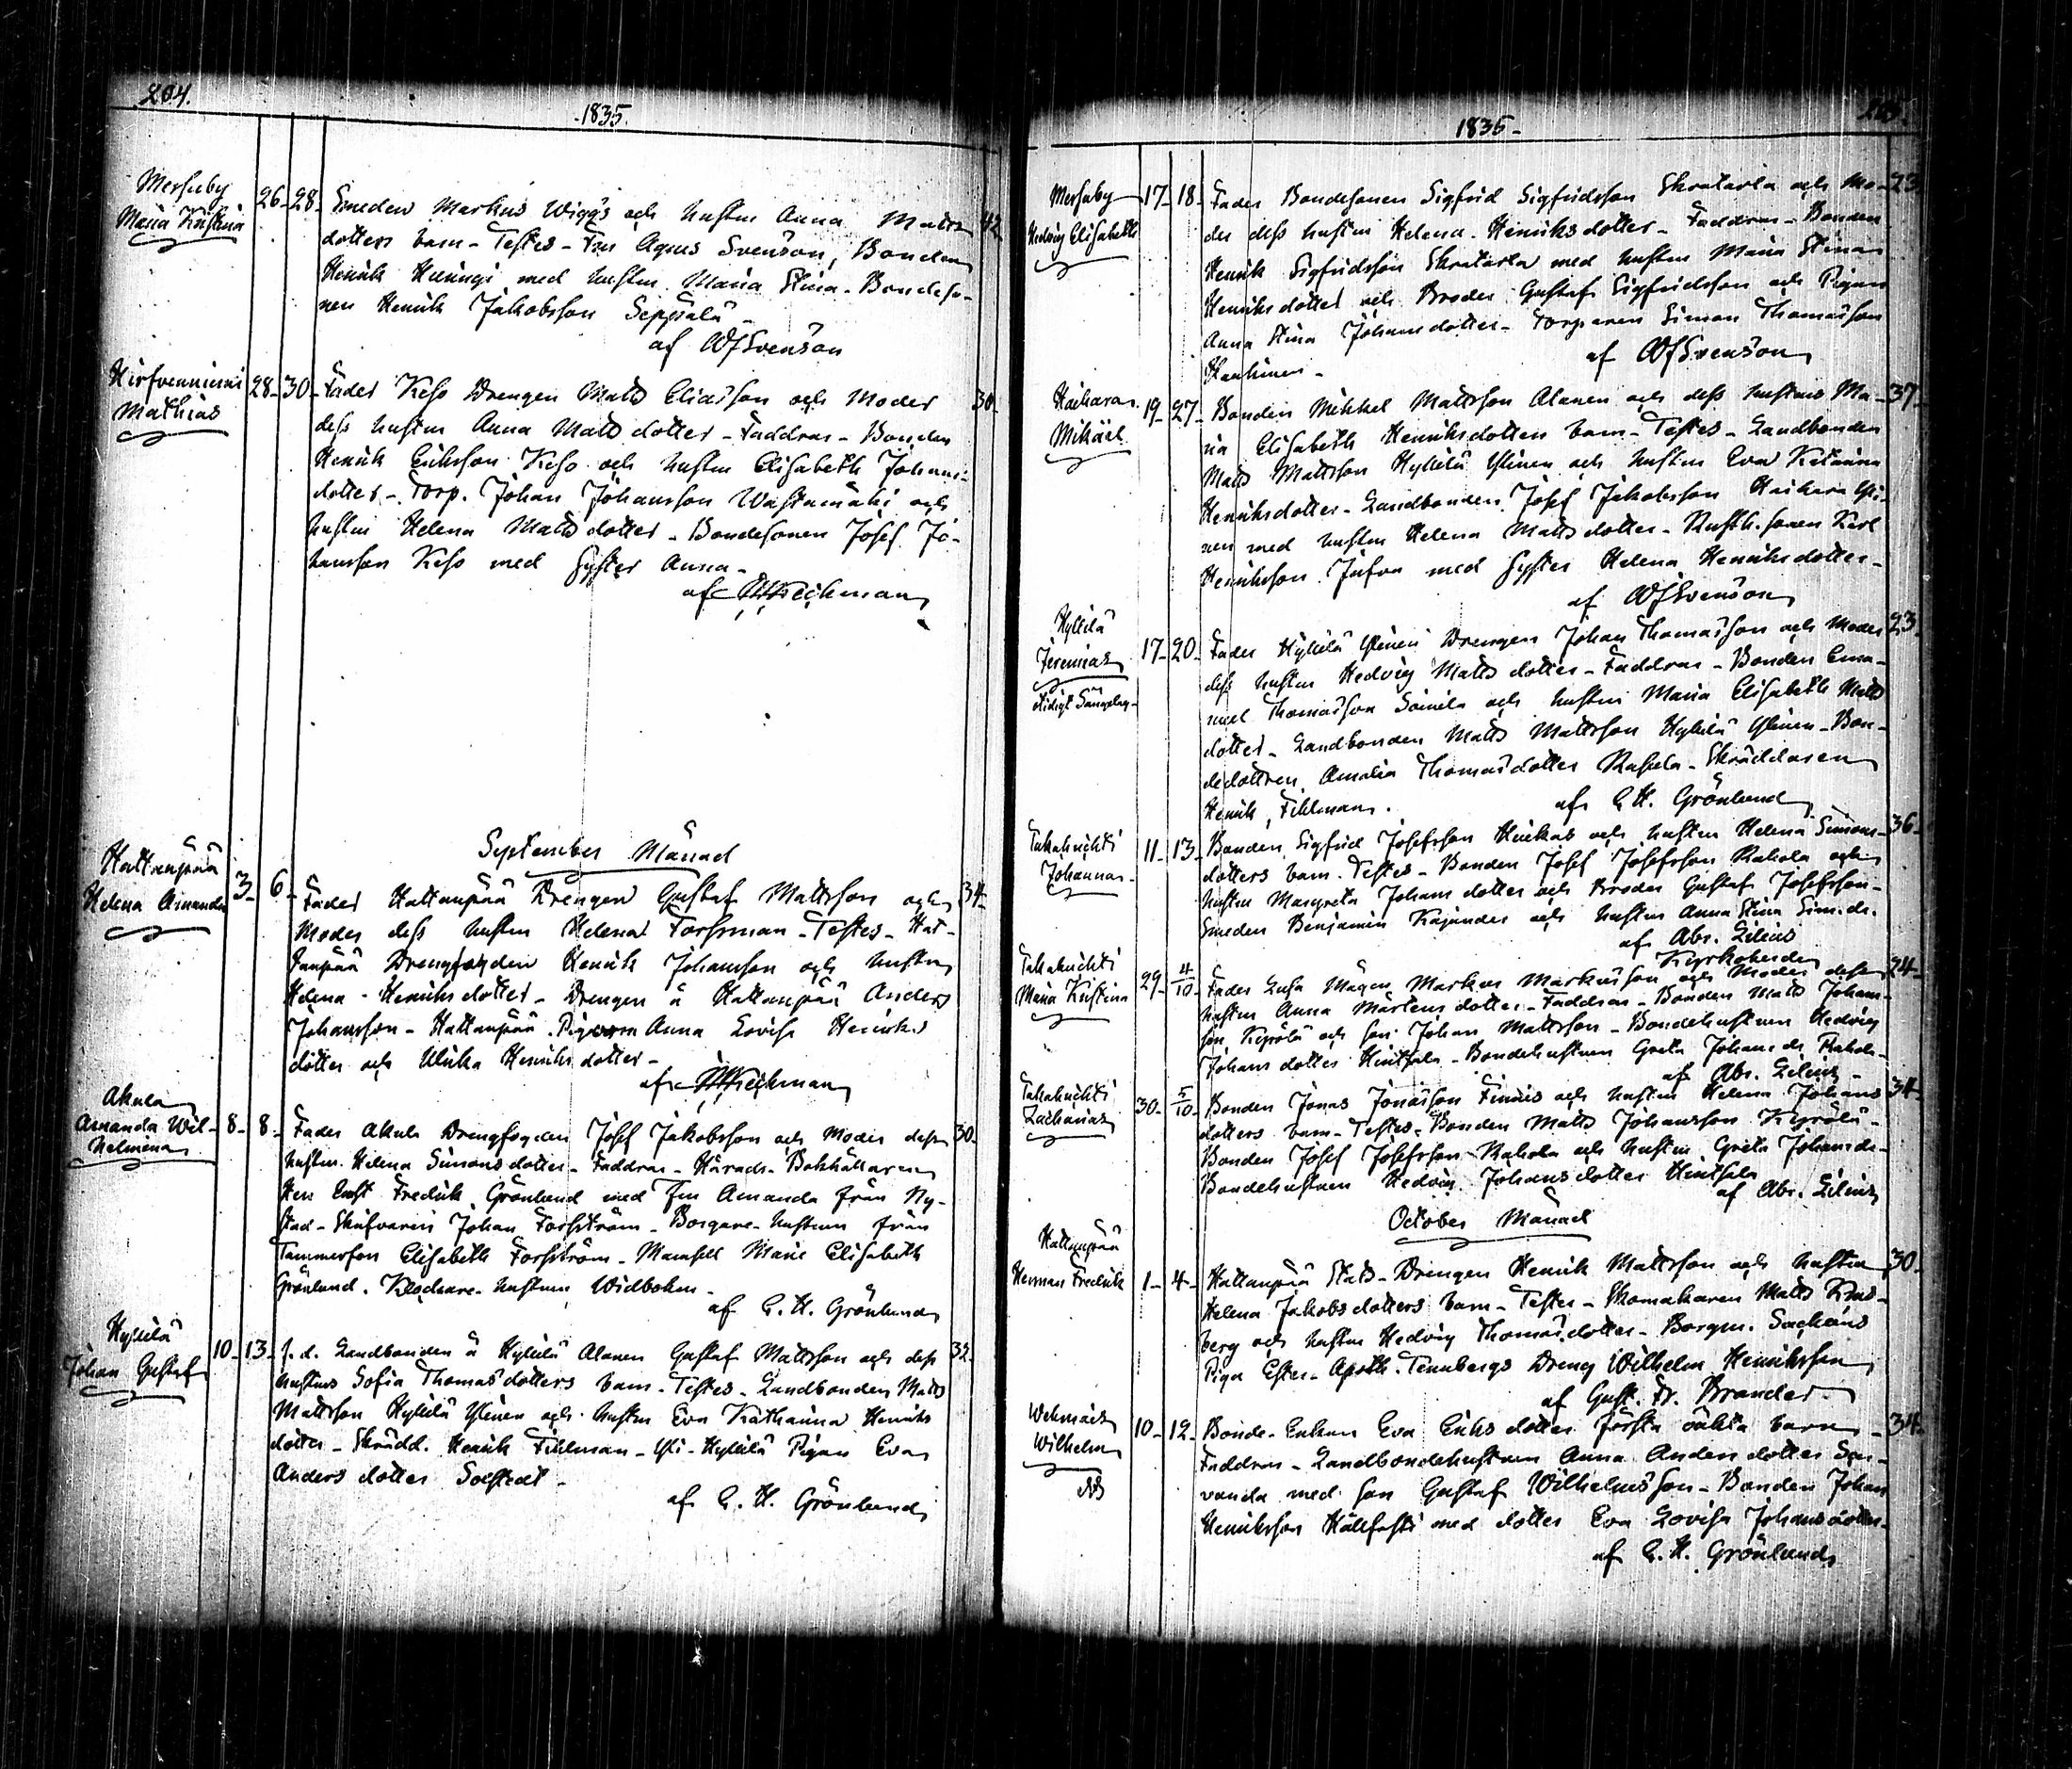 204.
1835.
Messuby
Maria Kristina
26 - 28 - Smeden Markus Wiggs och hustru Anna Matts 42
dotters barn - Testes - Fru Agnes Svenson, Bonden
Henrik med hustru Maria Stina - Bondeso-
nen Henrik Jakobsson Seppälä -
af WfSvenson
Hirfvenniemi
Mathias
28 - 30 - Fader Keso Drengen Matts Eliasson och Moder 30
dess hustru Anna Matts dotter - Faddrar - Bonden
Henrik Eriksson Keso och hustru Elisabeth Johans-
dotter - Torp. Johan Johansson Wastamäki och
hustru Helena Matts dotter - Bondesonen Josef Jo-
hansson Keso med Syster Anna -
af
September Månad
Hattanpää
Helena Amanda
3 - 6 - Fader Hattanpää Drengen Gustaf Mattsson och 34
Moder dess hustru Helena Forsman - Testes - Hat-
tanpää Drengfogden Henrik Johansson och hustru
Helena Henriks dotter - Drengen å Hattanpää Anders
Johansson - Hattanpää Pigorna Anna Lovisa Henriks
dotter och Ulrika Henriks dotter -
af
Akula
Amanda Wil-
helmina
8 - 8 - Fader Akula Drengfogden Josef Jakobsson och Moder dess 30
hustru Helena Simons dotter - Faddrar - Härads-Bokhållaren
Herr Ernst Fredrik Grönlund med Fru Amanda från Ny-
stad - Skarfvaren Johan Forsström - Borgare-hustrun från
Tammerfors Elisabeth Forsström - Mamsell Marie Elisabeth
Grönlund. Klockare-hustrun Widbohm -
af E. H. Grönlund
Hyhilä
Johan Gustaf
10 - 13 - f. d. Landbonden å Hyhilä Alanen Gustaf Mattsson och dess 32
hustrus Sofia Thomas dotters barn - Testes - Landbonden Matts
Mattsson Hyhilä Ylinen och hustru Eva Katharina Henriks
dotter - Skrädd. Henrik Fihlman - Yli-Hyhilä Pigan Eva
Anders dotter Soestedt -
af E. H. Grönlund
1835 -
Messuby
Hedvig Elisabeth
17 - 18 - Fader Bondesonen Sigfrid Sigfridsson Skratarla och Mo- 23
der dess hustru Helena Henriksdotter - Faddrar - Bonden
Henrik Sigfridsson Skratarla med hustru Maria Stina
Henriksdotter och Broder Gustaf Sigfridsson och Pigan
Anna Stina Johansdotter - Torparen Simon Thomasson
af WfSvenson
Haihara
Mikael
19 - 27 - Bonden Mikkel Mattsson Alanen och dess hustrus Ma- 37
ria Elisabeth Henriksdotters barn - Testes - Landbonden
Matts Mattsson Hyhilä Ylinen och hustru Eva Katarina
Henriksdotter - Landbonden Josef Jakobsson Haihara Yli-
nen med hustru Helena Matts dotter - Rusth. sonen Karl
Henriksson Jufva med Syster Helena Henriksdotter -
af WfSvenson
Hyhilä
Jeremias
17 - 20 - Fader Hyhilä Ylinen Drengen Johan Thomasson och Moder 23
dess hustru Hedvig Matts dotter - Faddrar - Bonden Ema-
nuel Thomasson Soinila och hustru Maria Elisabeth Matts
dotter - Landbonden Matts Mattsson Hyhilä Ylinen - Bon-
dedottren Amalia Thomas dotter Rasula - Skräddaren
Henrik Fihlman.
af E. H. Grönlund
Takahuchti
Johannes
11 - 13 - Bonden Sigfrid Josefsson Hiukas och hustru Helena Simons- 36
dotters barn. Testes - Bonden Josef Josefsson Rahola och
hustru Margreta Johans dotter och Broder Gustaf Josefsson -
Smeden Benjamin Kajander och hustru Anna Stina Sim. dr.
af Abr. Lilius
Kyrkoherde
Takahuchti
Maria Kristina
29 - 4/10 - Fader Lusa Mågen Markus Markusson och Moder dess 24
hustru Anna Mårtens dotter - Faddrar - Bonden Matts Johans-
son Keprölä och son Johan Mattsson - Bondehustrun Hedvig
Johans dotter Hintsala - Bondehustrun Greta Johans dr. Rahola -
af Abr. Lilius -
Takahuchti
Zacharias
30 - 5/10 - Bonden Jonas Jonasson Finnis och hustru Helena Johans 34
dotters barn - Testes - Bonden Matts Johansson Keprölä -
Bonden Josef Josefsson Rahola och hustru Greta Johans dr -
Bondehustrun Hedvig Johans dotter Hintsala
af Abr. Lilius
October Månad
Hattanpää
Herman Fredrik
1 - 4 - Hattanpää Stats-Drengen Henrik Mattsson och hustru 30
Helena Jakobs dotters barn - Testes - Skomakaren Matts
berg och hustru Hedvig Thomas dotter - Borgm. Sacklins
Piga Ester - Apoth. Tennbergs Dreng Wilhelm Henriksson
af Gust. Fr. Brander
Wehmais
Wilhelm
10 - 12 - Bonde-Enkan Eva Eriks dotter första oäkta barn - 34
Faddrar - Landbondehustrun Anna Anders dotter
med son Gustaf Wilhelmsson - Bonden Johan
Henriksson Hallfasti med dotter Eva Lovisa Johansdotter -
af E. H. Grönlund